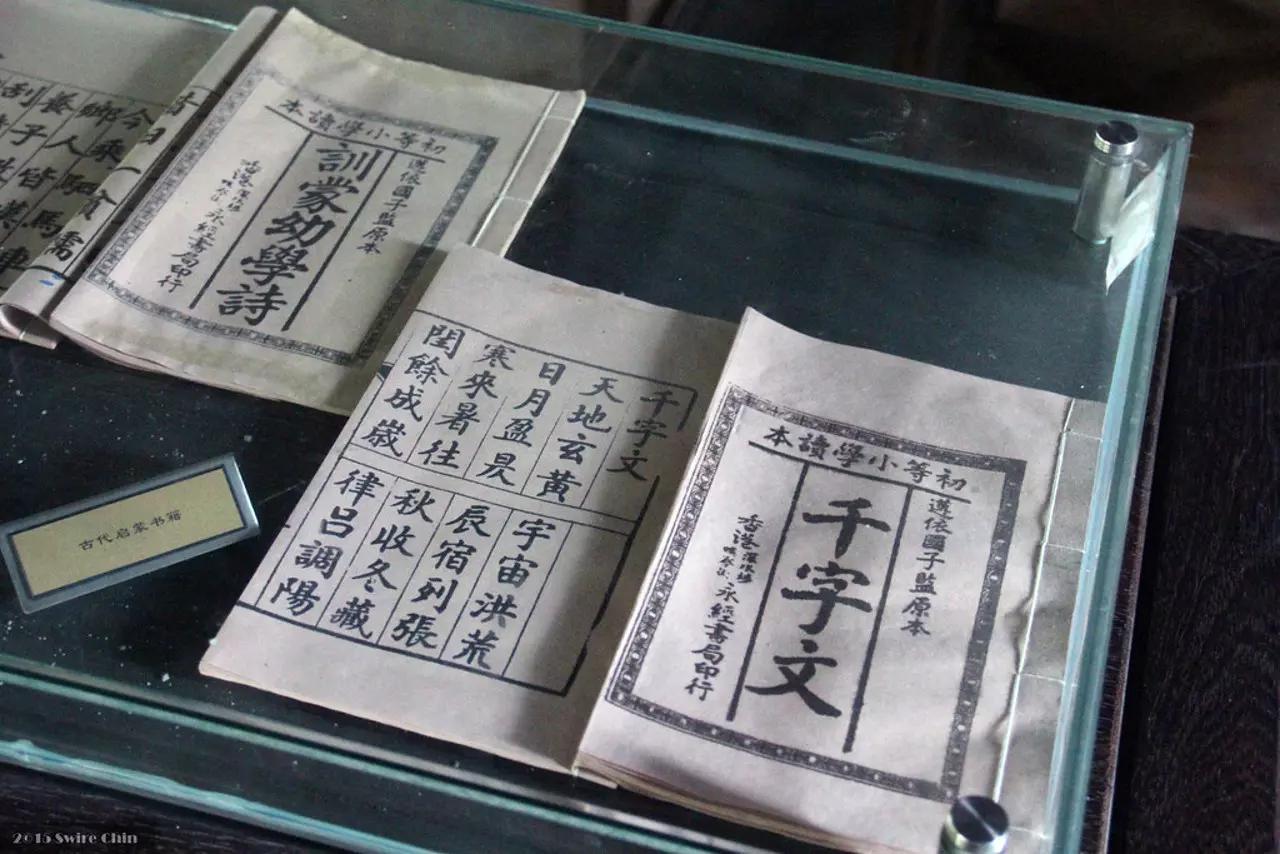 昔日一貧儒
今乘駟馬車
鄉人皆
養子
初等小學讀本
遵依國子監原本
訓蒙幼學詩
香港
永經書局印行
千字文
天地玄黃
宇宙洪荒
日月盈昃
辰宿列張
寒來暑往
秋收冬藏
閏餘成歲
律呂調陽
初等小學讀本
遵依國子監原本
千字文
香港
永經書局印行
古代启蒙书籍
2015 Swire Chin